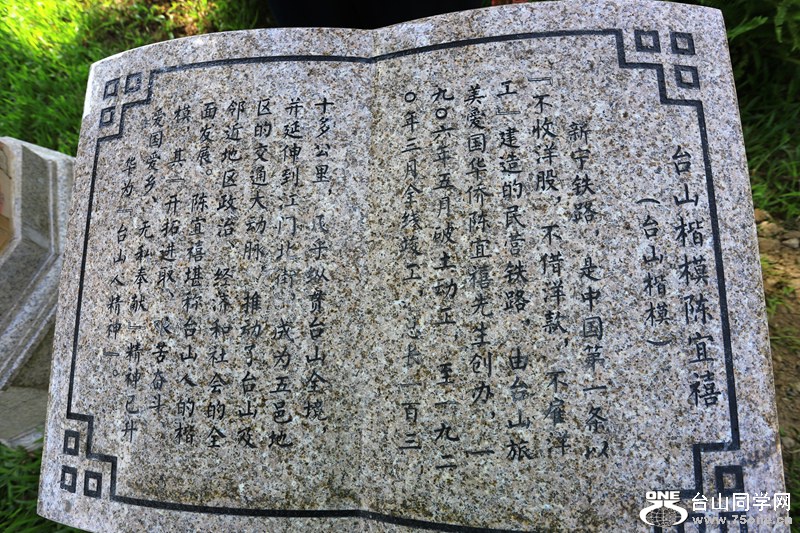 台山楷模陈宜禧
（台山楷模）
新宁铁路，是中国第一条以
『不收洋股，不借洋款，不雇洋
工』建造的民营铁路，由台山旅
美爱国华侨陈宜禧先生创办，一
九〇六年五月破土动工，至一九二
〇年三月全线竣工，总长一百三
十多公里，几乎纵贯台山全境，
并延伸到江门北街，成为五邑地
区的交通大动脉，推动了台山及
邻近地区政治、经济和社会的全
面发展。陈宜禧堪称台山人的楷
模，其『开拓进取、艰苦奋斗、
爱国爱乡、无私奉献』精神已升
华为『台山人精神』。
ONE 台山同学网
www.75one.cn